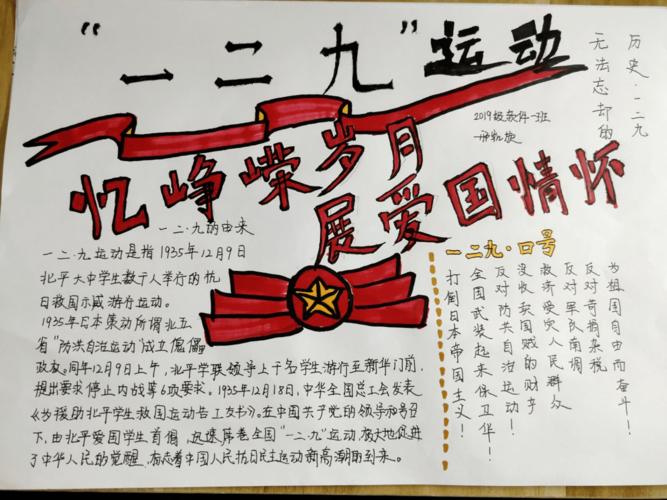 “一二九”运动
历史·一二九
无法忘却的
2019级软件一班
忆峥嵘岁月
展爱国情怀
一二·九的由来
一二·九运动是指1935年12月9日
北平大中学生数千人举行的抗
日救国示威游行运动。
1935年日本策动所谓北五
省“防共自治运动”成立傀儡
政权。同年12月9日上午，北平学联领导上千名学生游行至新华门前，
提出要求停止内战等6项要求。1935年12月18日，中华全国总工会发表
《为援助北平学生救国运动告工友书》。在中国共产党的领导和号召
下，由北平爱国学生首倡，迅速席卷全国“一二·九”运动，极大地促进
了中华人民的觉醒，标志着中国人民抗日民主运动新高潮的到来。
一二九·口号
为祖国自由而奋斗！
反对苛捐杂税
反对军队南调
救济受灾人民群众
没收卖国贼的财产
反对防共自治运动！
全国武装起来保卫华！
打倒日本帝国主义！